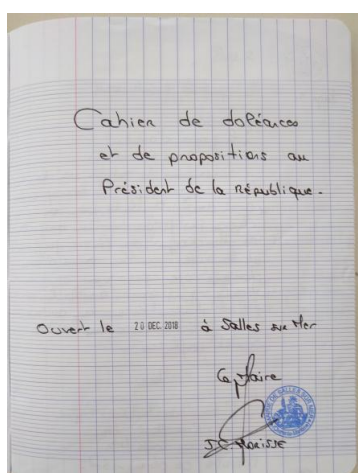 Cahier de doléances
et de propositions au
Président de la République.
Ouvert le 20 DEC. 2018 à Salles sur Mer
Le Maire